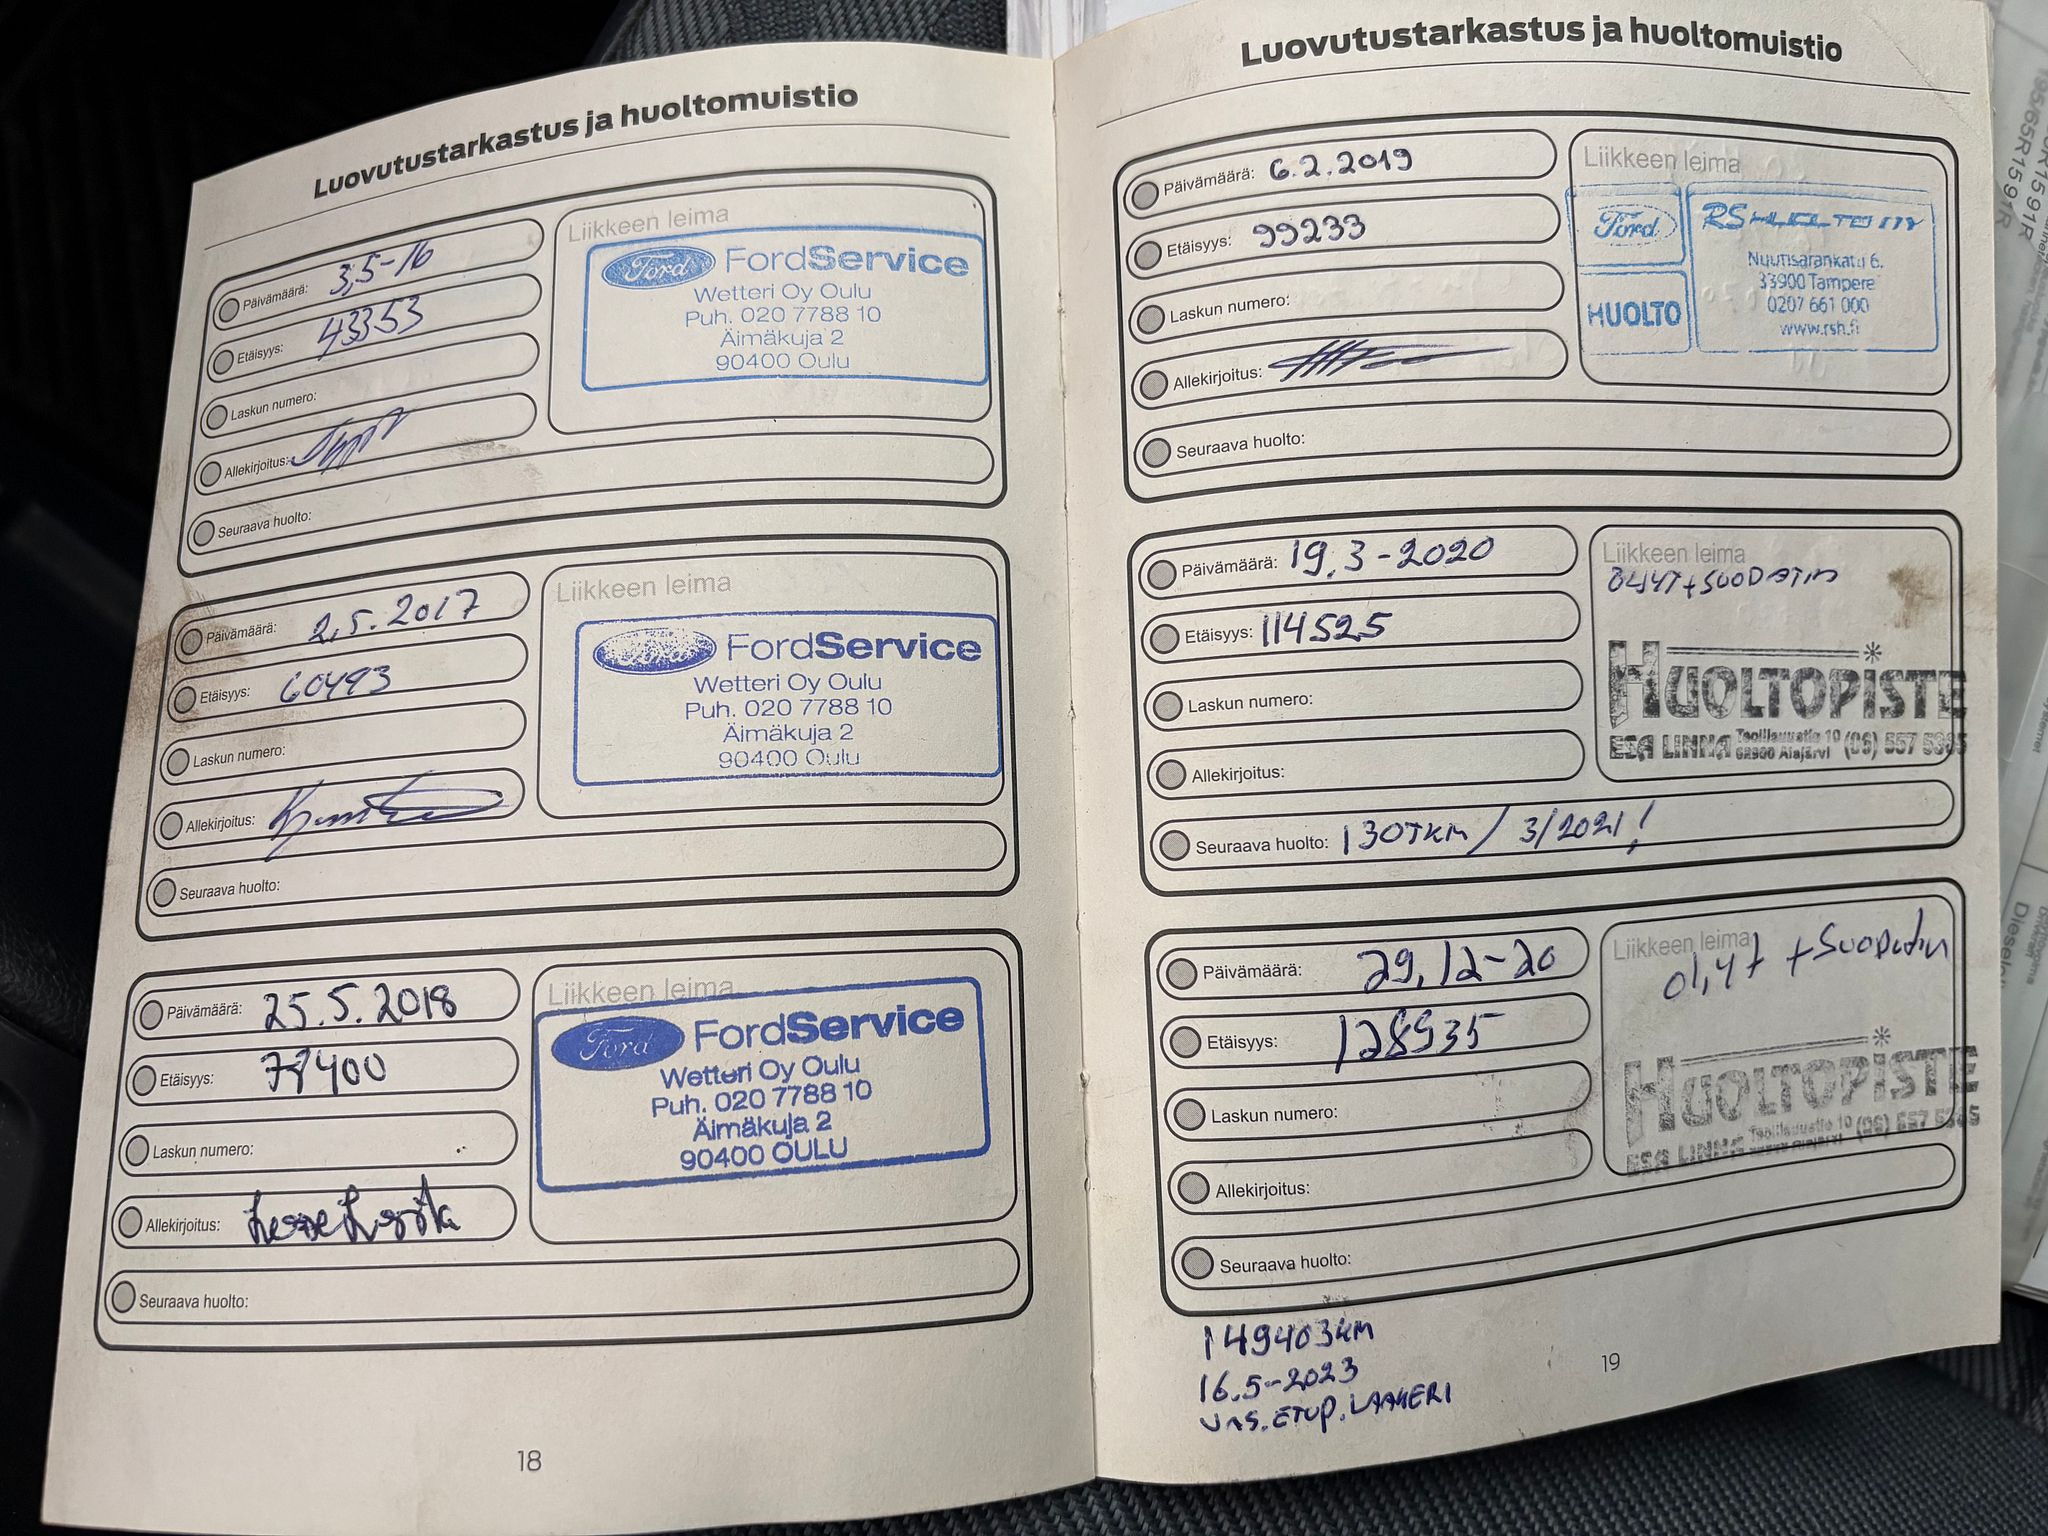 Luovutustarkastus ja huoltomuistio
Päivämäärä: 3,5-16
Etäisyys: 43353
Laskun numero:
Allekirjoitus:
Seuraava huolto:
Liikkeen leima
Ford FordService
Wetteri Oy Oulu
Puh. 020 7788 10
Äimäkuja 2
90400 Oulu
Päivämäärä: 2.5.2017
Etäisyys: 60493
Laskun numero:
Allekirjoitus:
Seuraava huolto:
Liikkeen leima
Ford FordService
Wetteri Oy Oulu
Puh. 020 7788 10
Äimäkuja 2
90400 Oulu
Päivämäärä: 25.5.2018
Etäisyys: 78400
Laskun numero:
Allekirjoitus:
Seuraava huolto:
Liikkeen leima
Ford FordService
Wetteri Oy Oulu
Puh. 020 7788 10
Äimäkuja 2
90400 OULU
18
Luovutustarkastus ja huoltomuistio
Päivämäärä: 6.2.2019
Etäisyys: 99233
Laskun numero:
Allekirjoitus:
Seuraava huolto:
Liikkeen leima
Ford
HUOLTO
RS HUOLTO
Nuutisarankatu 6.
33900 Tampere
0207 661 000
www.rsh.fi
Päivämäärä: 19.3-2020
Etäisyys: 114525
Laskun numero:
Allekirjoitus:
Seuraava huolto: 130TKM / 3/2021!
Liikkeen leima
ÖLJYT+SUODATIN
HUOLTOPISTE
ESA LINNA Teollisuustie 10 62900 Alajärvi (06) 557 5365
Päivämäärä: 29.12-20
Etäisyys: 128935
Laskun numero:
Allekirjoitus:
Seuraava huolto:
Liikkeen leima
öljyt + SUODATIN
HUOLTOPISTE
ESA LINNA Teollisuustie 10 (06) 557 5365
149403KM
16.5-2023
VAS.ETUP.LAAKERI
19
195/65R1591R
Diesel